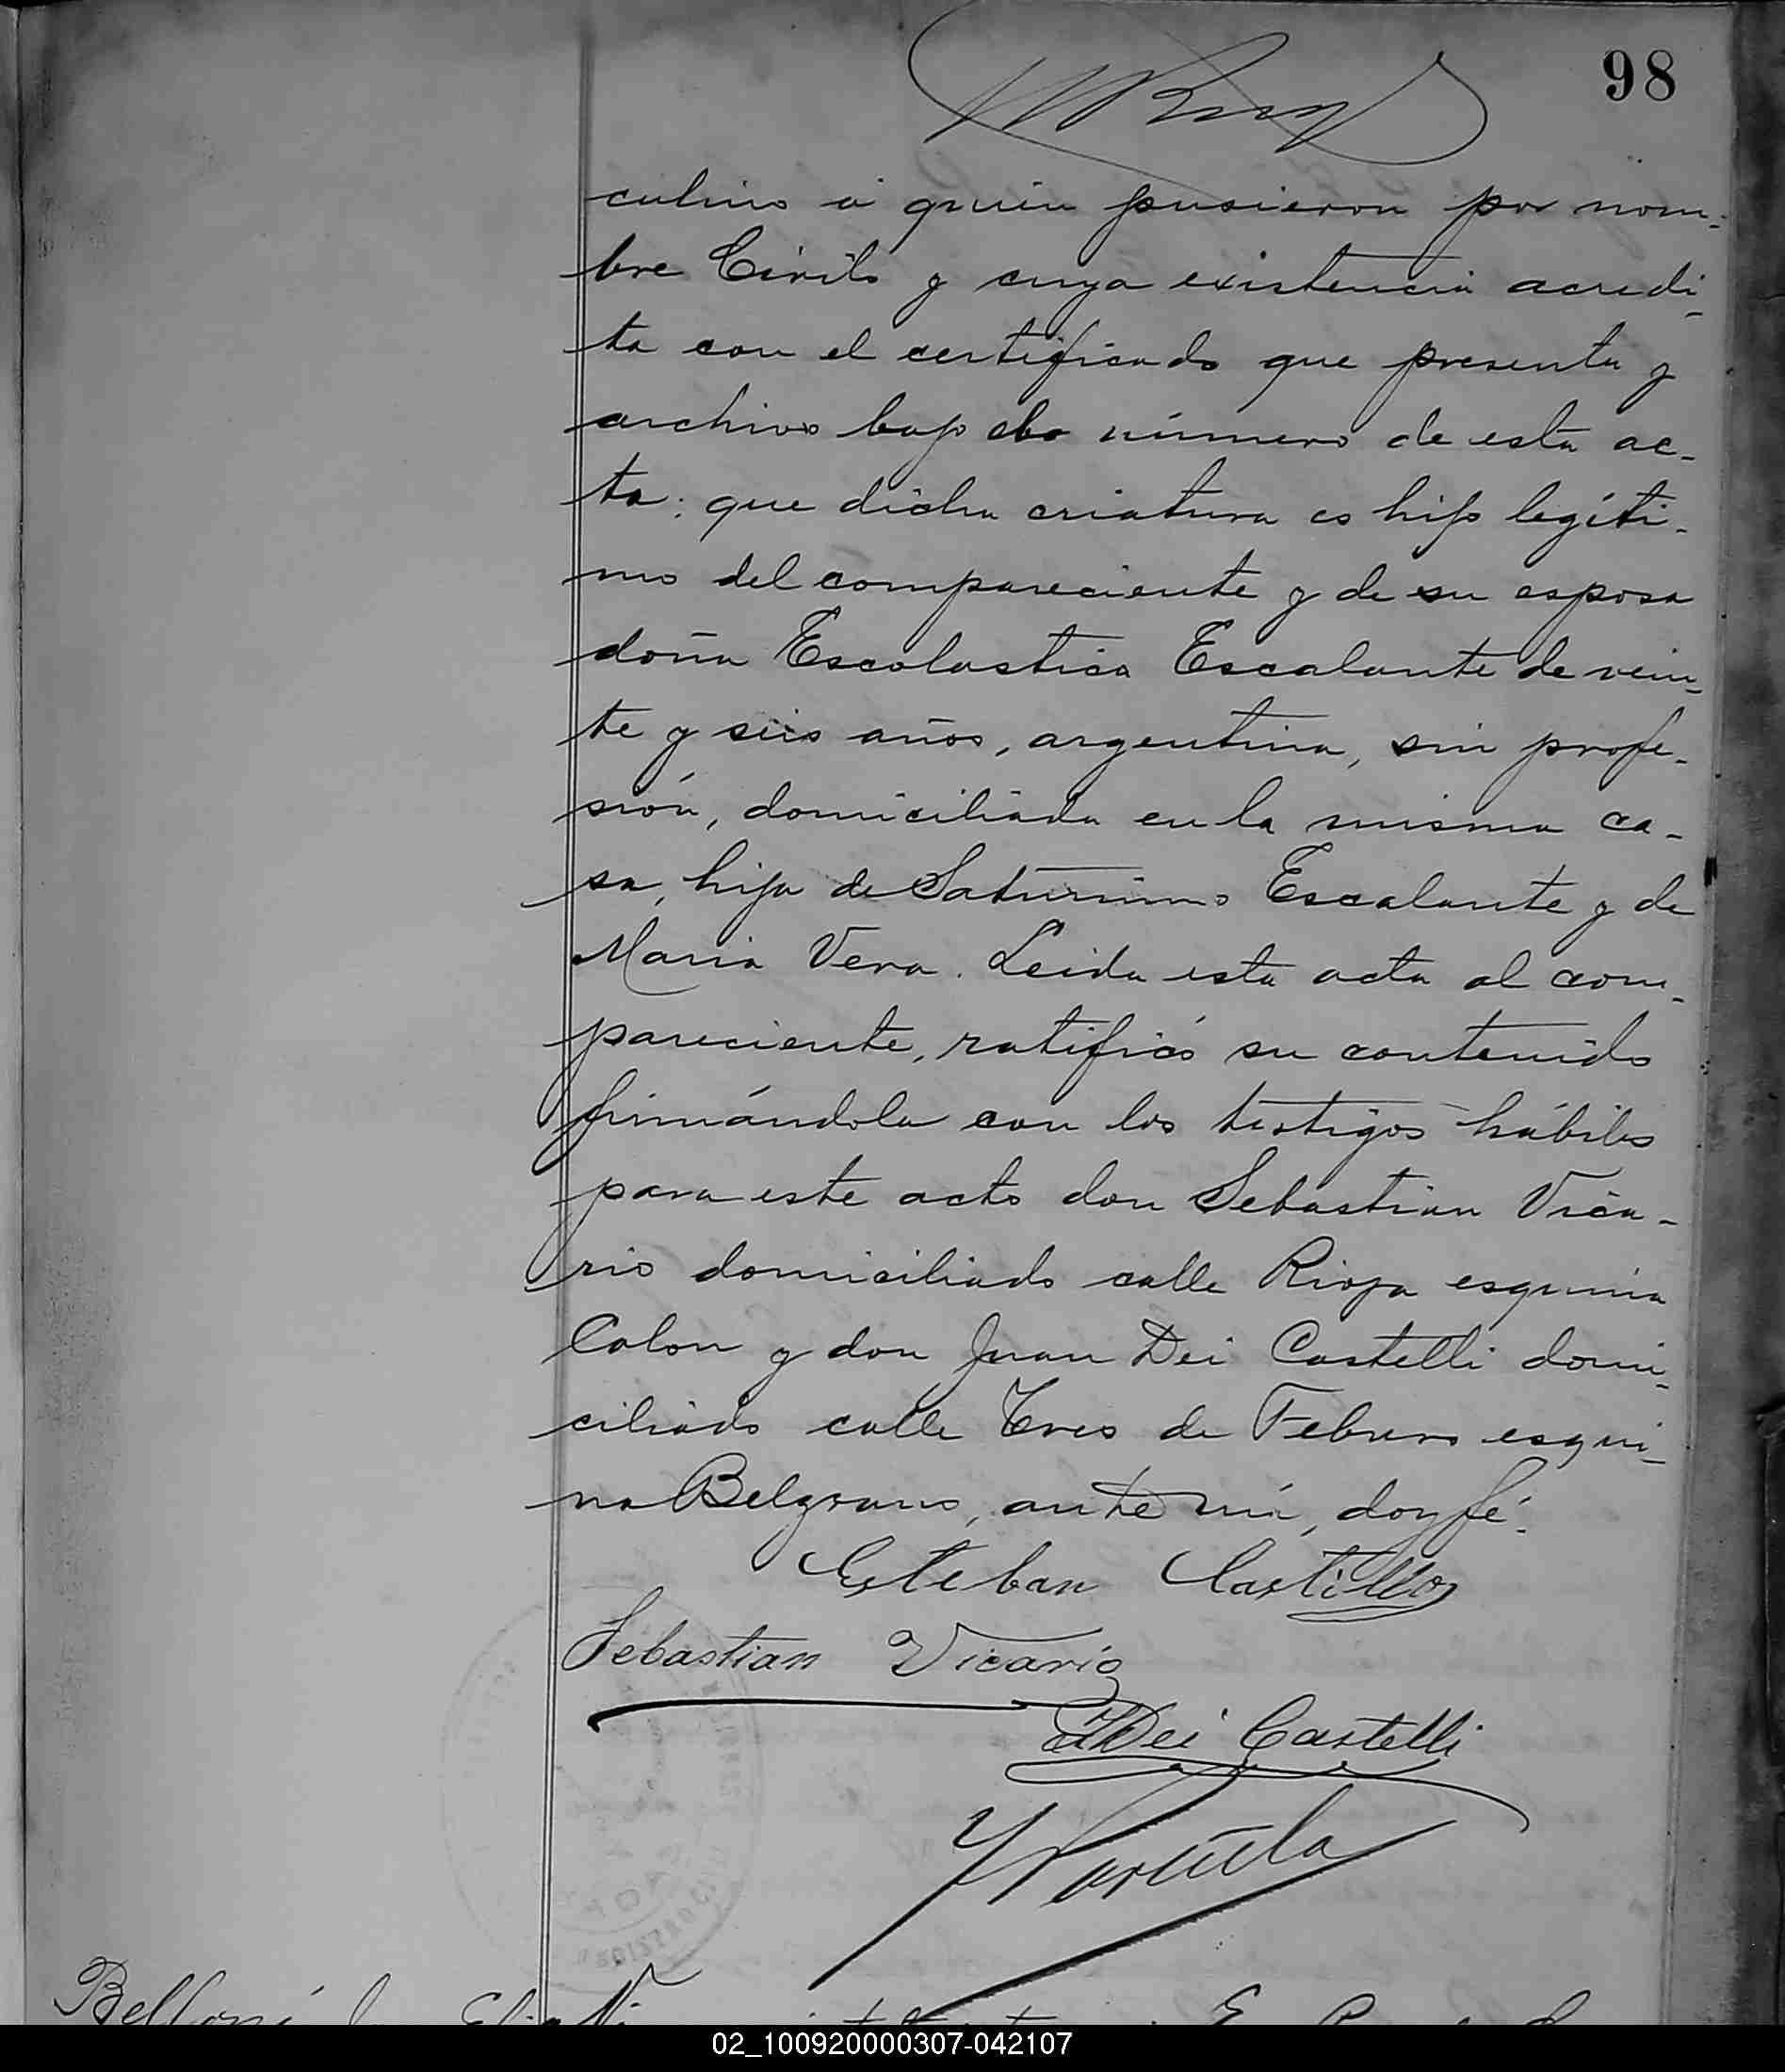 98
culino á quien pusieron por nom-
bre Cirilo y cuya existencia acredi-
ta con el certificado que presenta y
archivo bajo el número de esta ac-
ta; que dicha criatura es hijo legíti-
mo del compareciente y de su esposa
doña Escolastica Escalante de vein-
te y seis años, argentina, sin profe-
sión, domiciliada en la misma ca-
sa, hija de Saturnino Escalante y de
Maria Vera. Leida esta acta al com-
pareciente, ratificó su contenido
firmándola con los testigos hábiles
para este acto don Sebastian Vica-
rio domiciliado calle Rioja esquina
Colon y don Juan Dei Castelli domi-
ciliado calle Tres de Febrero esqui-
na Belgrano, ante mí, doy fé.
Esteban Castillo
Sebastian Vicario
Dei Castelli
02_100920000307-042107